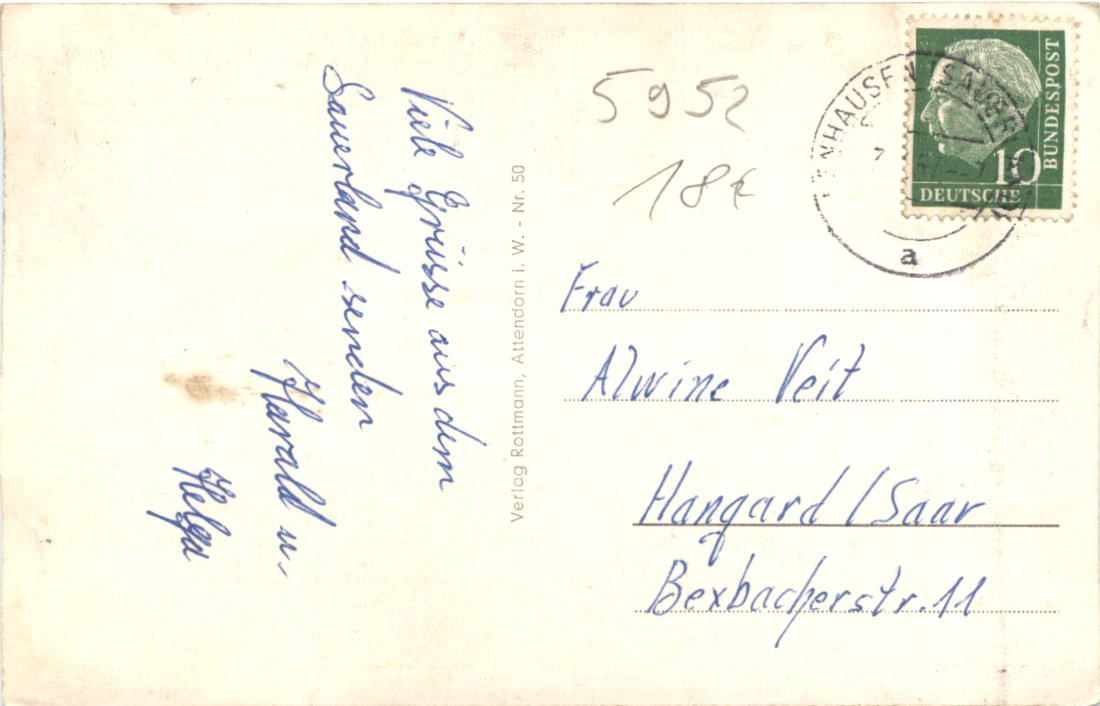 Viele Grüsse aus dem
Sauerland senden
Harald u.
Helga
Verlag Rottmann, Attendorn i. W. - Nr. 50
5952
18€
DEUTSCHE
BUNDESPOST
10
a
Frau
Alwine Veit
Hangard / Saar
Bexbacherstr. 11